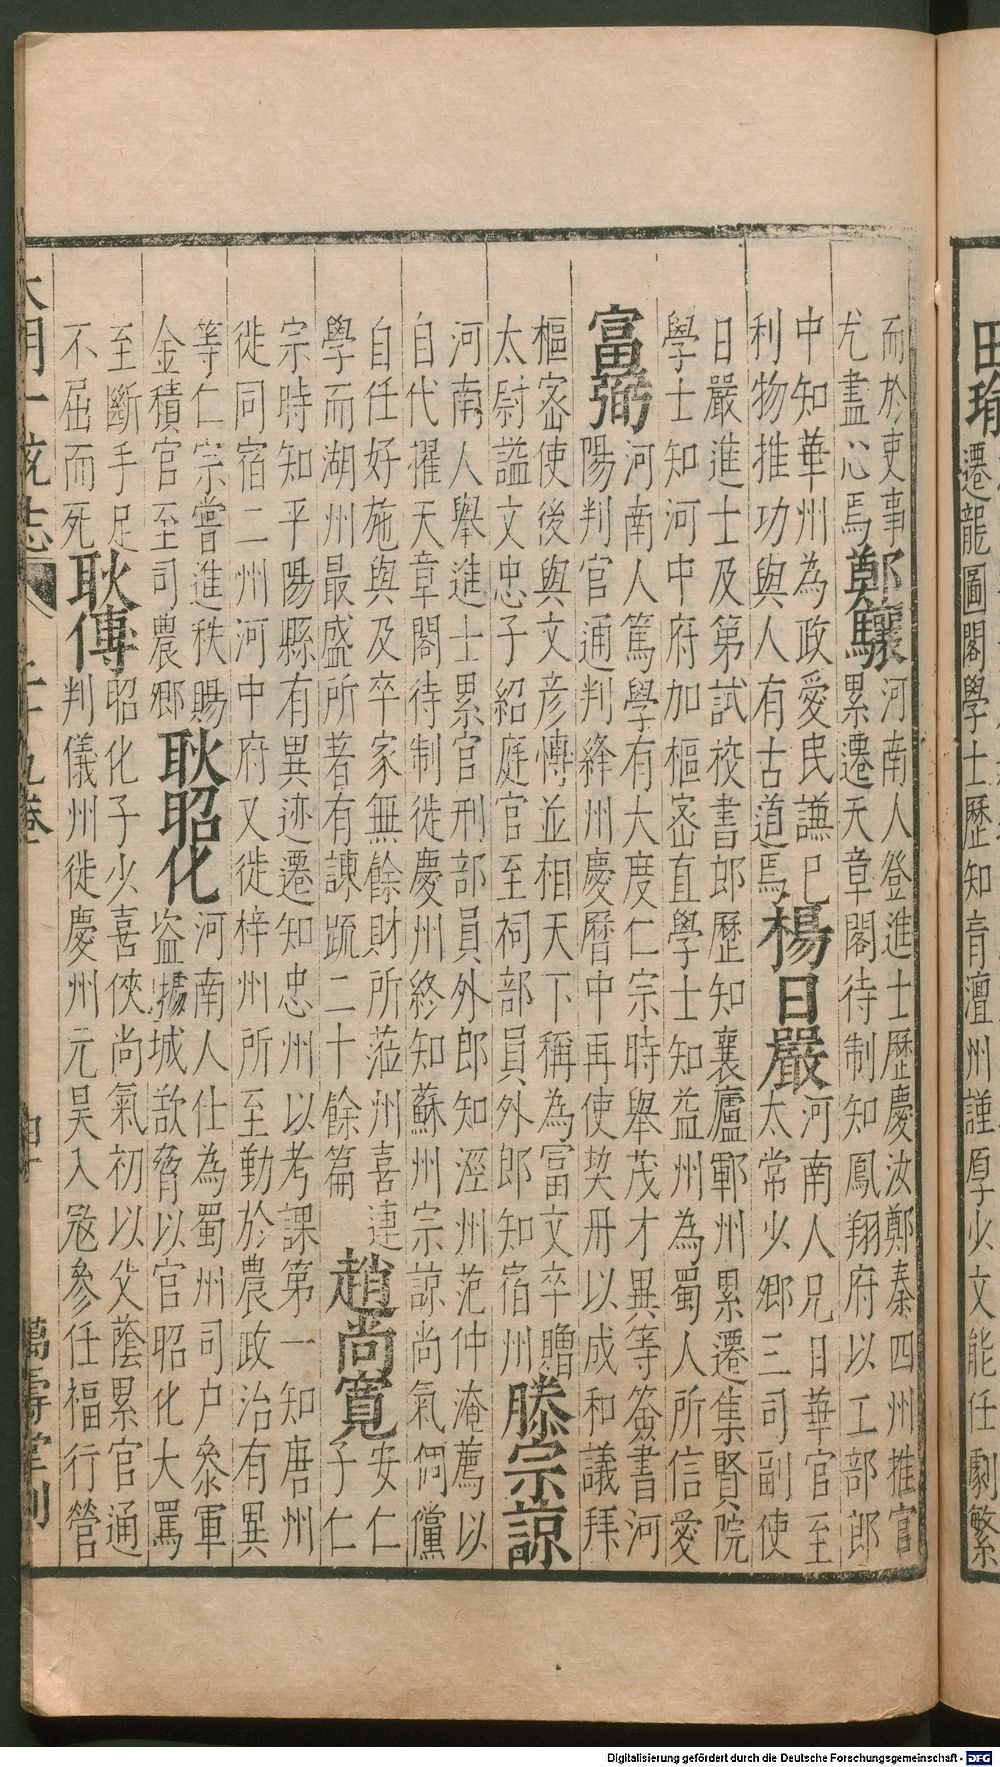 田瑜
遷龍圖閣學士歷知青澶州謹厚少文能任劇繁
而於吏事
尤盡心焉
鄭驤
河南人登進士歷慶汝鄭秦四州推官
累遷天章閣待制知鳳翔府以工部郎
中知華州為政愛民謙巳
利物推功與人有古道焉
楊日嚴
河南人兄日華官至
太常少卿三司副使
日嚴進士及第試校書郎歷知襄廬鄆州累遷集賢院
學士知河中府加樞密直學士知益州為蜀人所信愛
富弼
河南人篤學有大度仁宗時舉茂才異等簽書河
陽判官通判絳州慶曆中再使契丹以成和議拜
樞密使後與文彦愽並相天下稱為富文卒贈
太尉謚文忠子紹庭官至祠部員外郎知宿州
滕宗諒
河南人舉進士累官刑部員外郎知涇州范仲淹薦以
自代擢天章閣待制徙慶州終知蘇州宗諒尚氣倜儻
自任好施與及卒家無餘財所蒞州喜建
學而湖州最盛所著有諫疏二十餘篇
趙尚寬
安仁
子仁
宗時知平陽縣有異迹遷知忠州以考課第一知唐州
徙同宿二州河中府又徙梓州所至勤於農政治有異
等仁宗嘗進秩賜
金積官至司農卿
耿昭化
河南人仕為蜀州司户叅軍
盗據城欲脅以官昭化大罵
至斷手足
不屈而死
耿傅
昭化子少喜俠尚氣初以父蔭累官通
判儀州徙慶州元昊入宼參任福行營
大明一統志 二十九卷 萬壽堂刊
Digitalisierung gefördert durch die Deutsche Forschungsgemeinschaft - DFG